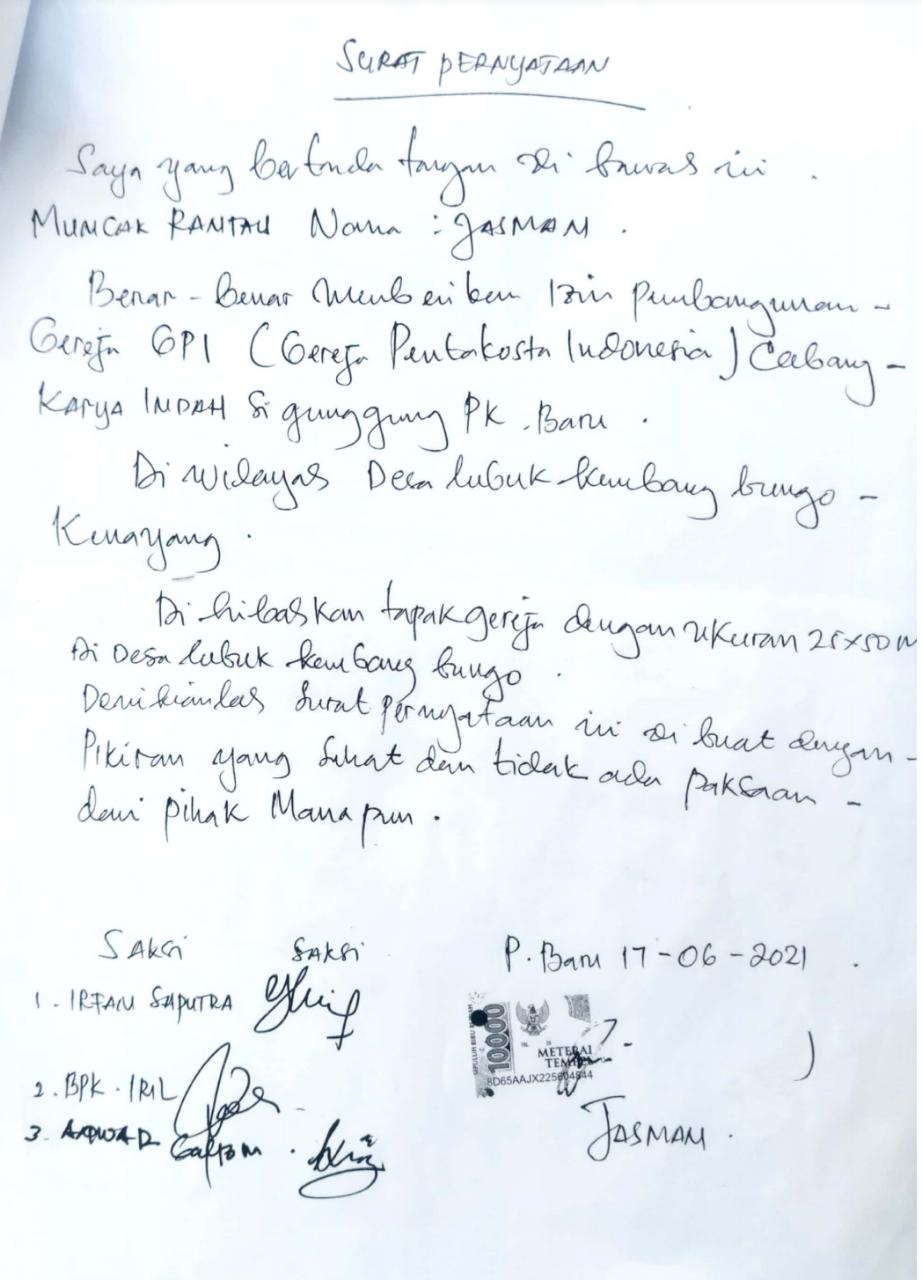 SURAT PERNYATAAN
Saya yang bertanda tangan di bawas ini .
MUNCAK RANTAU Nama : JASMAN .
Benar - benar Memberikan Izin Pembangunan -
Gereja GPI ( Gereja Pentakosta Indonesia ) Cabang -
KARYA INDAH Si gunggung PK . Baru .
Di wilayas Desa lubuk kembang bungo -
Kenayang .
Di hibaskan tapak gereja dengan ukuran 25x50 m
Di Desa lubuk kembang bungo .
Demikianlas Surat pernyataan ini di buat dengan -
Pikiran yang Sehat dan tidak ada paksaan -
dari pihak Mana pun .
SAKSI SAKSI P. Baru 17-06-2021 .
1 . IRFAN SAPUTRA
10000
METERAI
TEMPEL
8D65AAJX225604844
2. BPK . IRIL
3.
JASMAN .